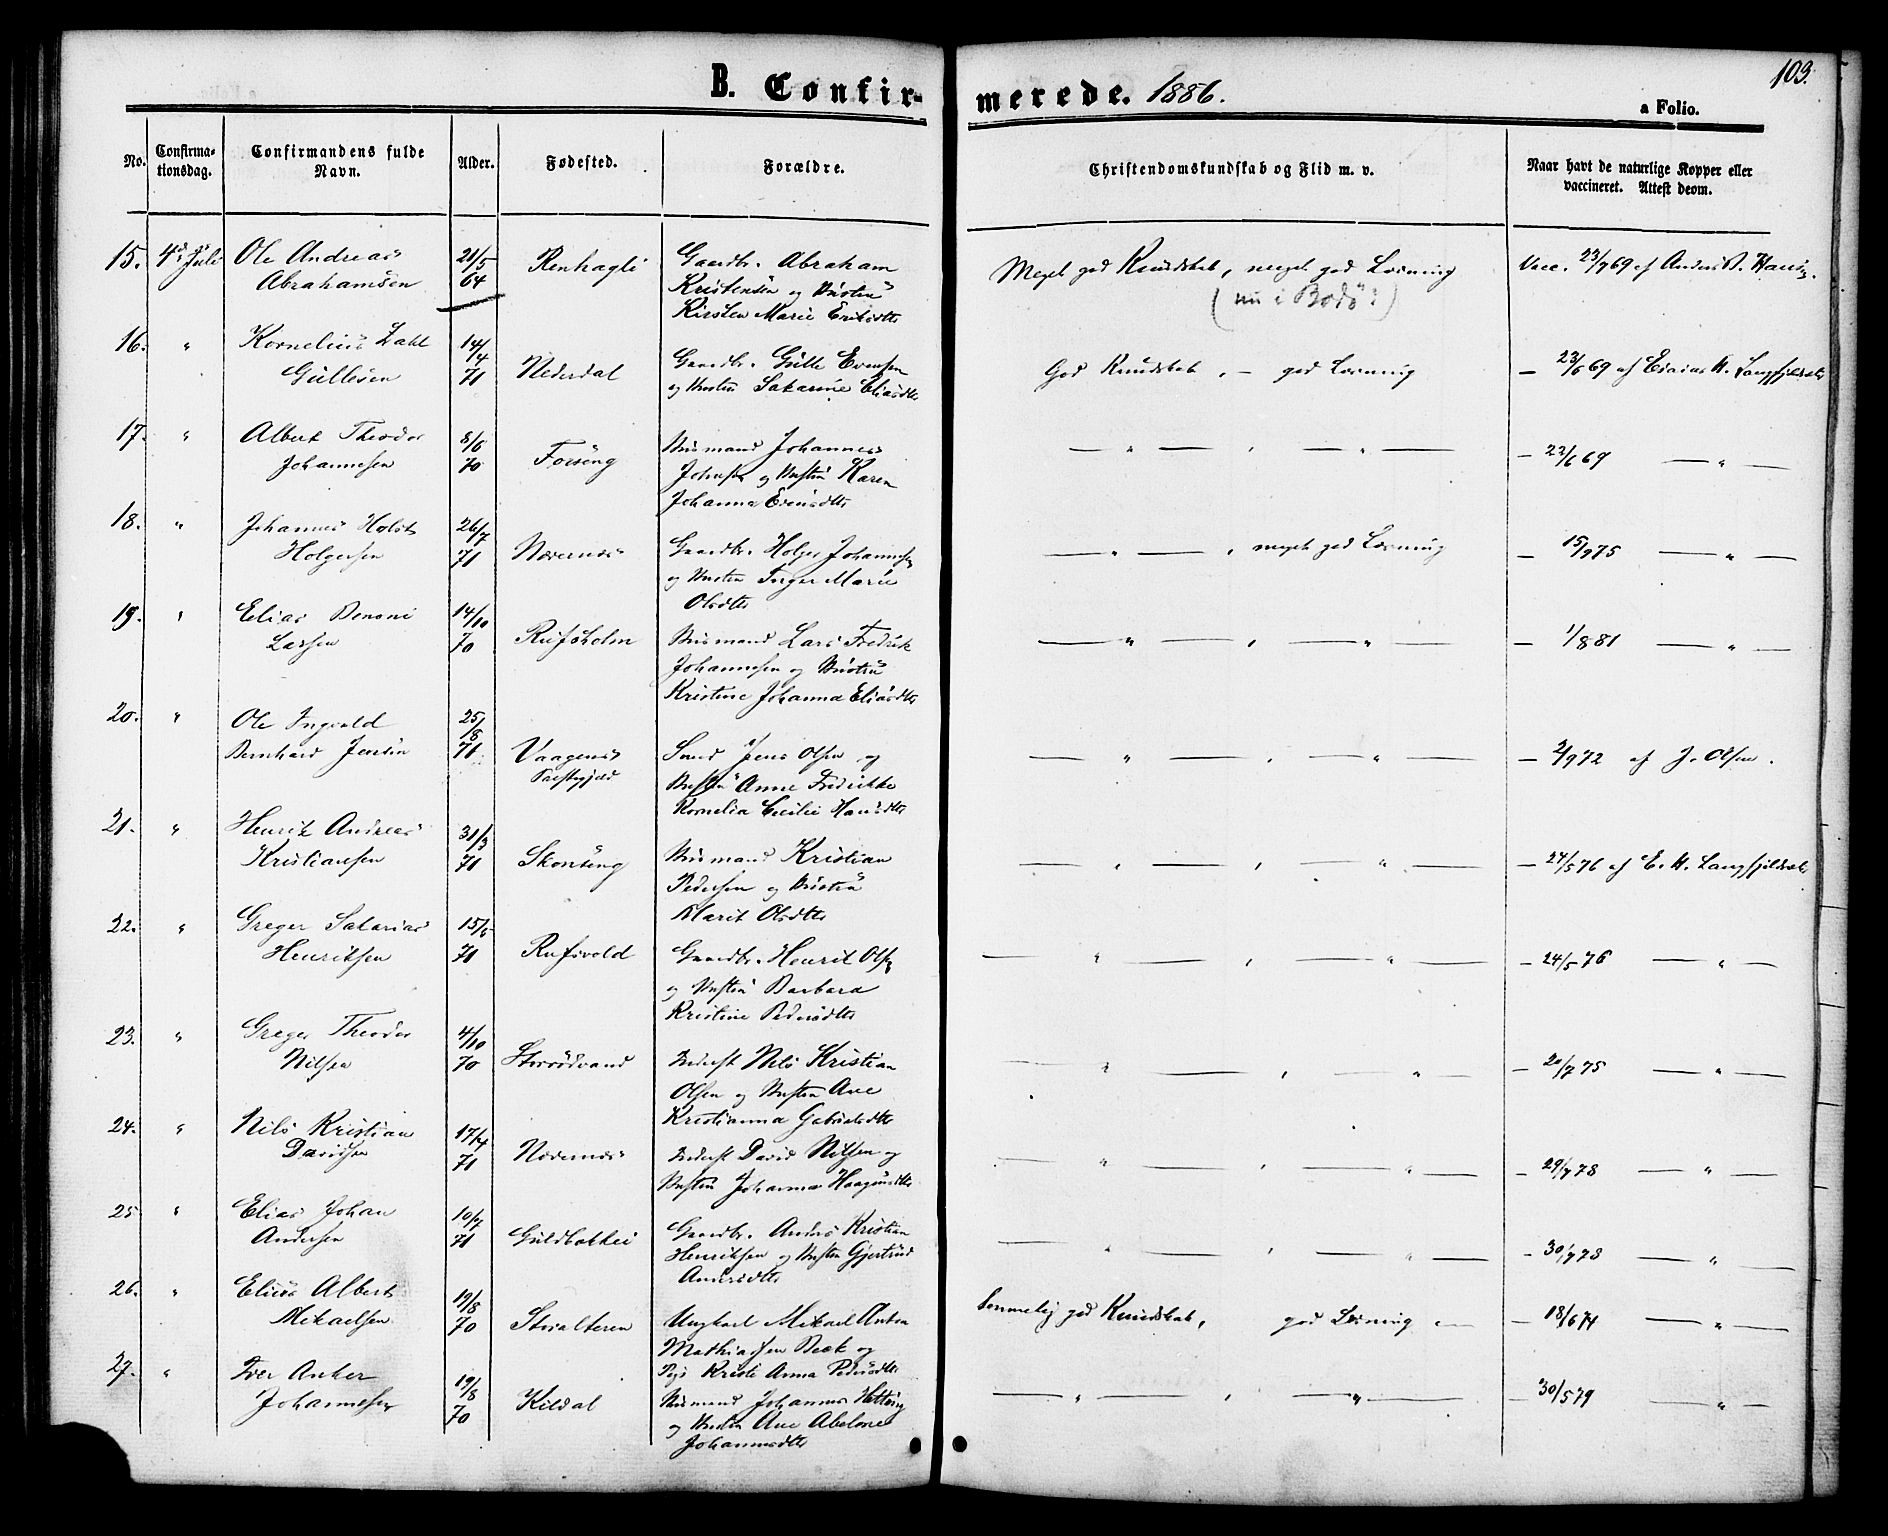 103.
B. Confir- merede. 1886.
a Folio.
No. Confirma-tionsdag. Confirmandens fulde Navn. Alder. Fødested. Forældre. Christendomskundskab og Flid m. v. Naar havt de naturlige Kopper eller vaccineret. Attest deom.
15. 4de Juli Ole Andreas 21/5 Renhagli Gaardbr. Abraham Meget god Kundskab, meget god Læsning Vacc. 23/7 69 af Anders
Abrahamsen 64 Kristensen og Hustru (nu i Bodø?)
Kirsten Marie Eriksdtr
16. " Kornelius Zahl 14/4 Nederdal Gaardbr. Gulle Evensen God Kundskab, – god Læsning – 23/6 69 af Esaias H. Langfjeldnæs
Gullesen 71 og Hustru Sakarine Eliasdtr
17. " Albert Theodor 8/6 Forsøng Husmand Johannes — " — , — " — – 22/6 69 — " —
Johannesen 70 Johnsen og Hustru Karen
Johanna Evensdtr
18. " Johannes Holst 26/7 Nævernæs Gaardbr. Holger Johannesen — " — , meget god Læsning – 15/9 75 — " —
Holgersen 71 og Hustru Inger Marie
Olsdtr
19. " Elias Benoni 14/10 Rufsholm Husmand Lars Fredrik — " — , — " — – 1/8 81 — " —
Larsen 70 Johannesen og Hustru
Kristine Johanna Eliasdtr
20. " Ole Ingvald 25/8 Vaagenes Smed Jens Olsen og — " — , — " — – 2/9 72 af J. Olsen.
Bernhard Jensen 71 Præstegjæld Hustru Anne Fredrikke
Kornelia Cecilie Hansdtr
21. " Henrik Andreas 31/3 Skonseng Husmand Kristian — " — , — " — – 24/5 76 af E. H. Langfjeldnæs
Kristiansen 71 Pedersen og Hustru
Marit Olsdtr
22. " Greger Sakarias 15/6 Rufsvold Gaardbr. Henrik Olsen — " — , — " — – 24/5 76 — " —
Henriksen 71 og Hustru Barbara
Kristine Pedersdtr
23. " Greger Theodor 4/10 Storrødvand Inderst Nils Kristian — " — , — " — – 20/7 75 — " —
Nilsen 70 Olsen og Hustru Ane
Kristianna Gabrielsdtr
24. " Nils Kristian 17/4 Nævernæs Inderst David Nilsen og — " — , — " — – 29/7 78 — " —
Davidsen 71 Hustru Johanna Haagensdtr
25. " Elias Johan 10/7 Guldbakkli Gaardbr. Anders Kristian — " — , — " — – 30/7 78 — " —
Andersen 71 Henriksen og Hustru Gjertrud
Andersdtr
26. " Elias Albert 19/8 Storalteren Ungkarl Mikael Anton temmelig god Kundskab, god Læsning – 18/6 74 — " —
Mikaelsen 70 Mathiassen Bæk og
Pige Kristi Anna Pedersdtr
27. " Iver Anker 19/8 Kildal Husmand Johannes — " — , — " — – 30/5 79 — " —
Johannesen 70 og Hustru Ane Abelone
Johannesdtr